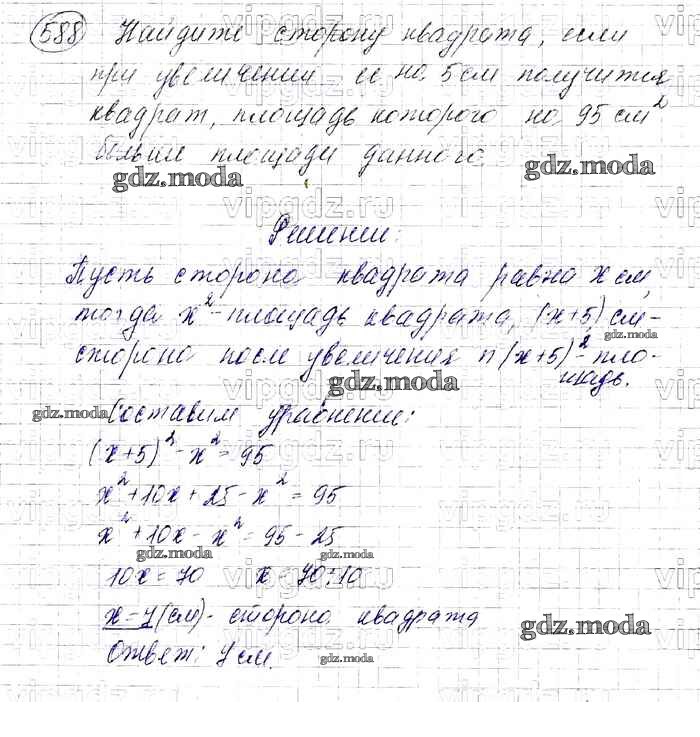 588 Найдите сторону квадрата, если
при увеличении ее на 5 см получится
квадрат, площадь которого на 95 см²
больше площади данного.
gdz.moda gdz.moda
vipgdz.ru
Решение:
Пусть сторона квадрата равна x см,
тогда x² - площадь квадрата, (x+5) см -
gdz.moda
сторона после увеличения и (x+5)² - пло-
щадь.
gdz.moda
gdz.moda Составим уравнение:
(x+5)² - x² = 95
x² + 10x + 25 - x² = 95
x² + 10x - x² = 95 - 25
gdz.moda gdz.moda
10x = 70 x = 70:10
x = 7 (см) - сторона квадрата
gdz.moda
Ответ: 7 см.
gdz.moda